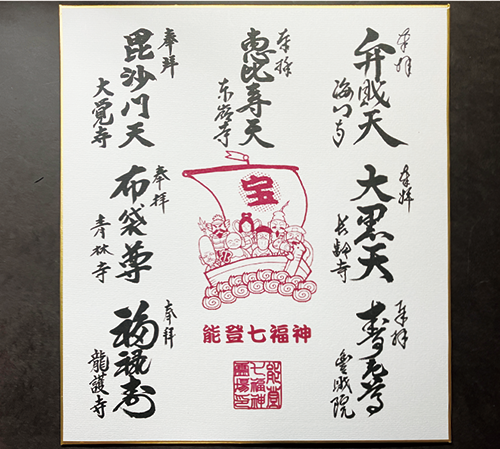 奉拝
弁戝天
海門寺
奉拝
大黒天
長齢寺
奉拝
寿老尊
豊戝院
奉拝
恵比寿天
東嶺寺
宝
能登七福神
能登
七福神
靈場印
奉拜
毘沙門天
大覚寺
奉拝
布袋尊
青林寺
奉拜
福禄寿
龍護寺